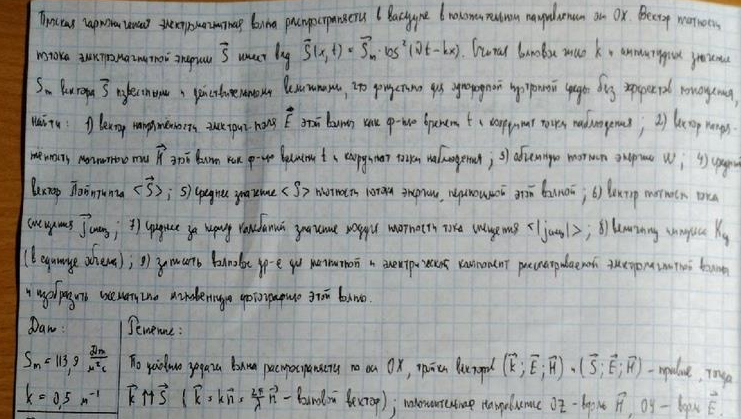 Плоская гармоническая электромагнитная волна распространяется в вакууме в положительном направлении оси OX. Вектор плотности
потока электромагнитной энергии S⃗ имеет вид S⃗(x,t) = S⃗m·cos²(ωt-kx). Считая волновое число k и амплитудное значение
Sm вектора S⃗ известными и действительными величинами, что допустимо для однородной изотропной среды без эффектов поглощения,
найти: 1) вектор напряжённость электрич. поля E⃗ этой волны как ф-цию времени t и координат точки наблюдения; 2) вектор напря-
жённость магнитного поля H⃗ этой волны как ф-цию времени t и координат точки наблюдения; 3) объёмную плотность энергии w; 4) средний
вектор Пойнтинга <S⃗>; 5) среднее значение <S> плотности потока энергии, переносимой этой волной; 6) вектор плотности тока
смещения j⃗смещ; 7) среднее за период колебаний значение модуля плотности тока смещения <|jсмещ|>; 8) величину импульса Kед
(в единице объёма); 9) записать волновое ур-е для магнитной и электрической компонент рассматриваемой электромагнитной волны
и изобразить схематично мгновенную фотографию этой волны.
Дано: Решение:
Sm = 113,9 Дж/м²с По условию задачи волна распространяется по оси OX, тройки векторов (k⃗; E⃗; H⃗) и (S⃗; E⃗; H⃗) - правые, тогда
k = 0,5 м⁻¹ k⃗ ↑↑ S⃗ (k⃗ = kn⃗ = 2π/λ n⃗ - волновой вектор); положительное направление OZ - вдоль H⃗, OY - вдоль E⃗.